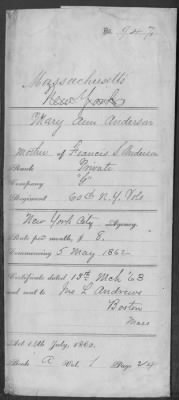 No. 9470
Massachusetts
New York
Mary Ann Anderson
Mother of Francis S. Anderson
Rank Private
Company "G"
Regiment 60th N.Y. Vols
New York City Agency.
Rate per month, $ 8.
Commencing 5 May 1862
Certificate dated 13th Mch '63
and sent to Jno L Andrews
Boston
Mass
Act 14th July, 1862.
Book A Vol. 1 Page 24